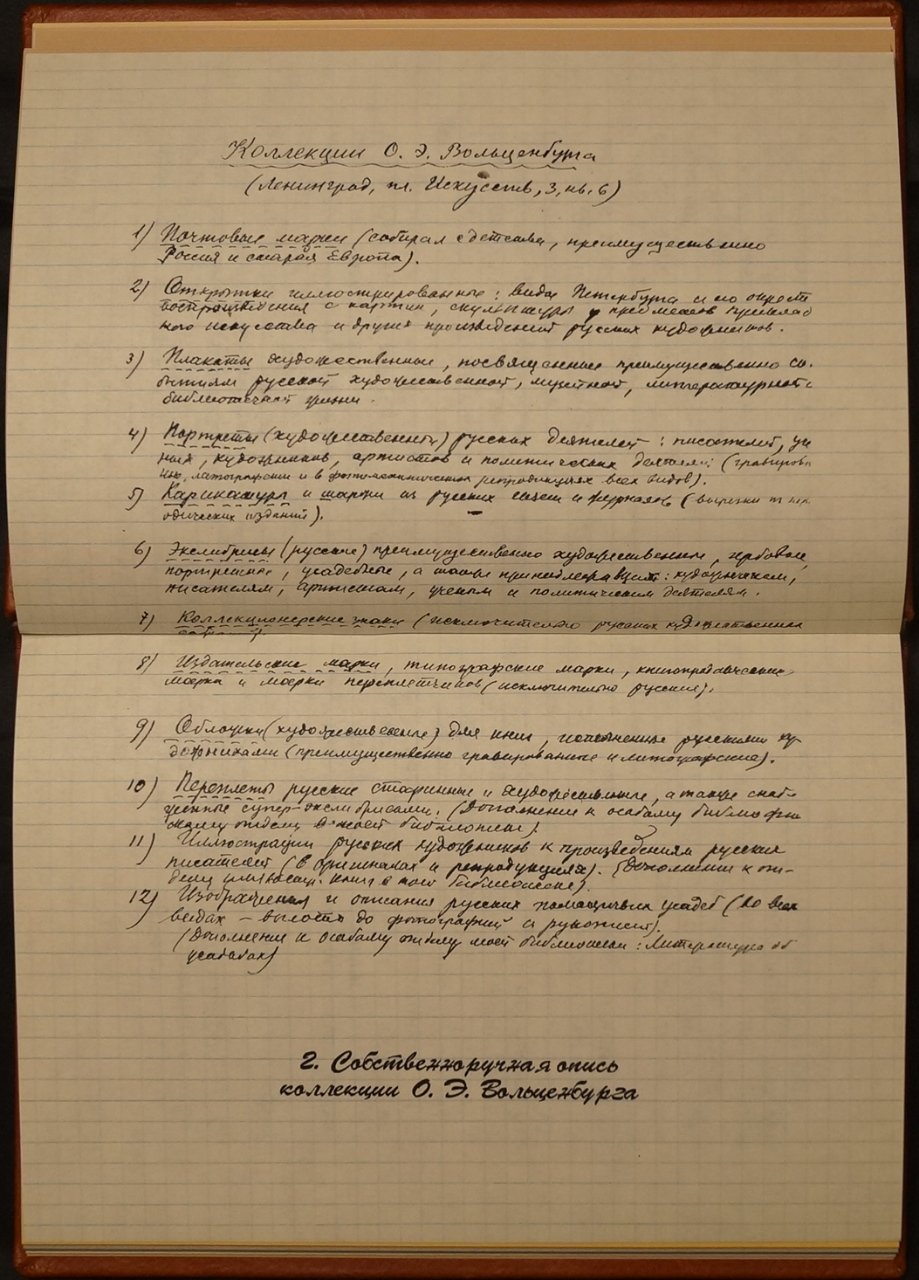 Коллекции О. Э. Вольценбурга
(Ленинград, пл. Искусств, 3, кв. 6)
1) Почтовые марки (собирал с детства, преимущественно
Россия и старая Европа).
2) Открытки иллюстрированные: виды Петербурга и его окрест
воспроизведения с картин, скульптуры, предметов приклад
ного искусства и других произведений русских художников.
3) Плакаты художественные, посвященные преимущественно со-
бытиям русской художественной, музейной, литературной и
библиотечной жизни.
4) Портреты (художественные) русских деятелей: писателей, уче
ных, художников, артистов и политических деятелей (гравирова
ные, литографии и в фотомеханических репродукциях всех видов).
5) Карикатуры и шаржи из русских газет и журналов (вырезки из пери
одических изданий).
6) Экслибрисы (русские) преимущественно художественные, гербовые,
портретные, усадебные, а также принадлежавшие: художникам,
писателям, артистам, ученым и политическим деятелям.
7) Коллекционерские знаки (исключительно русских художественных
собраний).
8) Издательские марки, типографские марки, книгопродавческие
марки и марки переплетчиков (исключительно русские).
9) Обложки (художественные) для книг, исполненные русскими ху-
дожниками (преимущественно гравированные и литографские).
10) Переплеты русские старинные и художественные, а также снаб-
женные супер-экслибрисами. (Дополнение к особому библиофиль
скому отделу моей библиотеки).
11) Иллюстрации русских художников к произведениям русских
писателей (в оригиналах и репродукциях). (Дополнение к от-
делу книг в моей библиотеке).
12) Изображения и описания русских помещичьих усадеб (во всех
видах – вплоть до фотографий и рукописей).
(Дополнение к особому отделу моей библиотеки: Литература об
усадьбах)
2. Собственноручная опись
коллекции О. Э. Вольценбурга